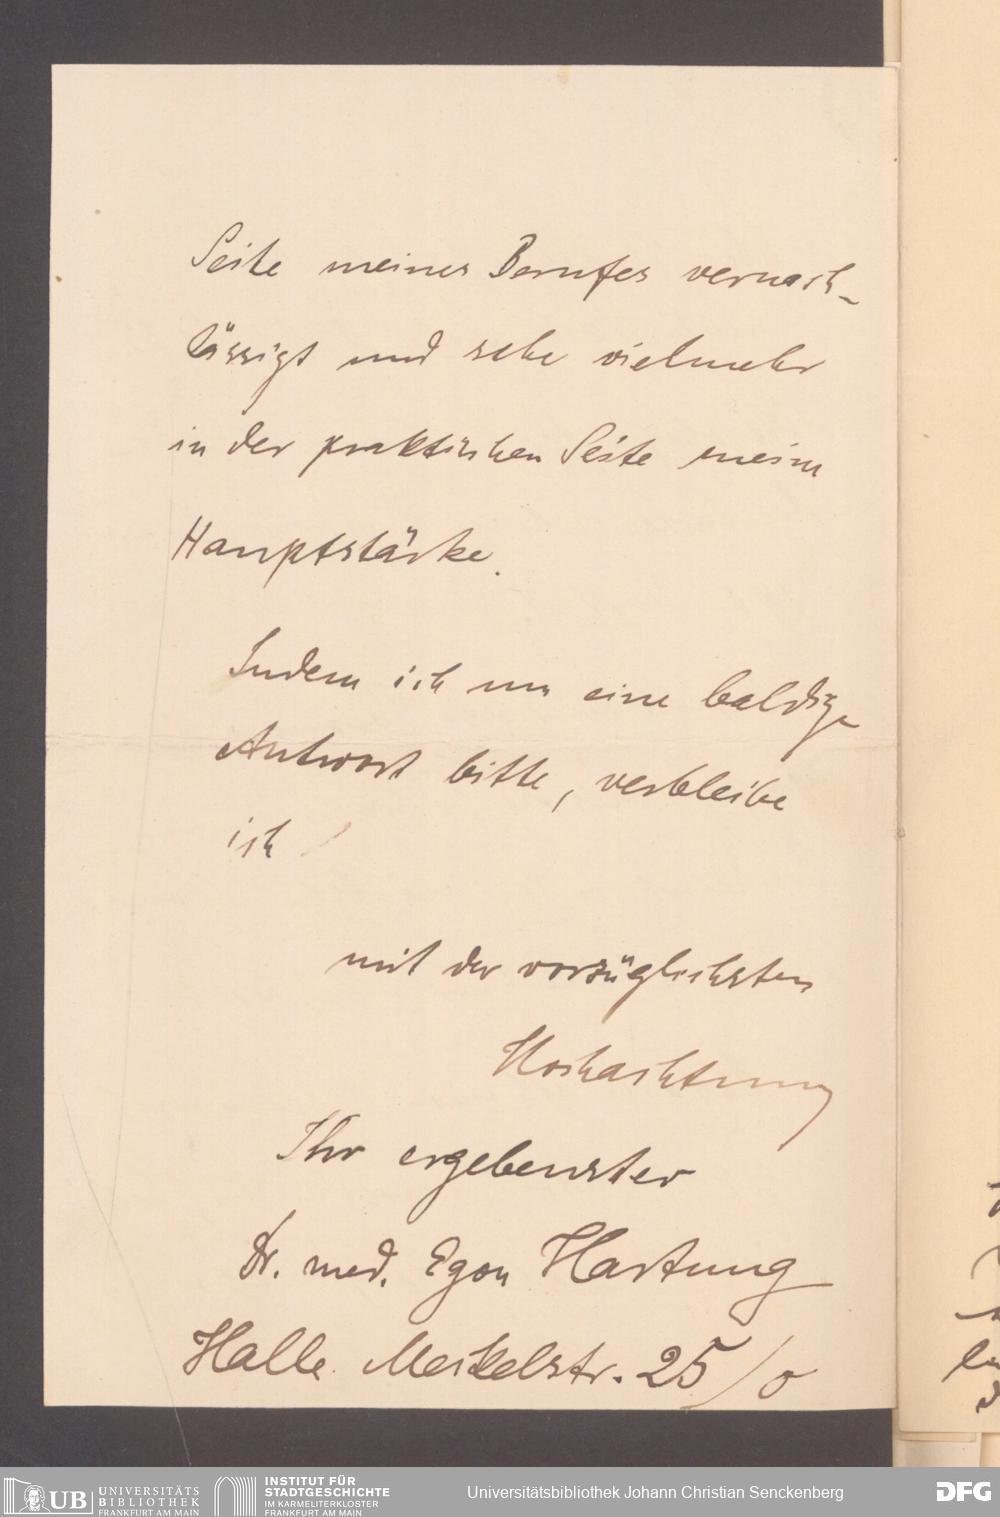 Seite meines Berufes vernach-
lässigt und sehe vielmehr
in der praktischen Seite meine
Hauptstärke.
Indem ich um eine baldige
Antwort bitte, verbleibe
ich
mit der vorzüglichsten
Hochachtung
Ihr ergebenster
Dr. med. Egon Hartung
Halle. Meckelstr. 25/0
UB UNIVERSITÄTS
BIBLIOTHEK
FRANKFURT AM MAIN
INSTITUT FÜR
STADTGESCHICHTE
IM KARMELITERKLOSTER
FRANKFURT AM MAIN
Universitätsbibliothek Johann Christian Senckenberg
DFG